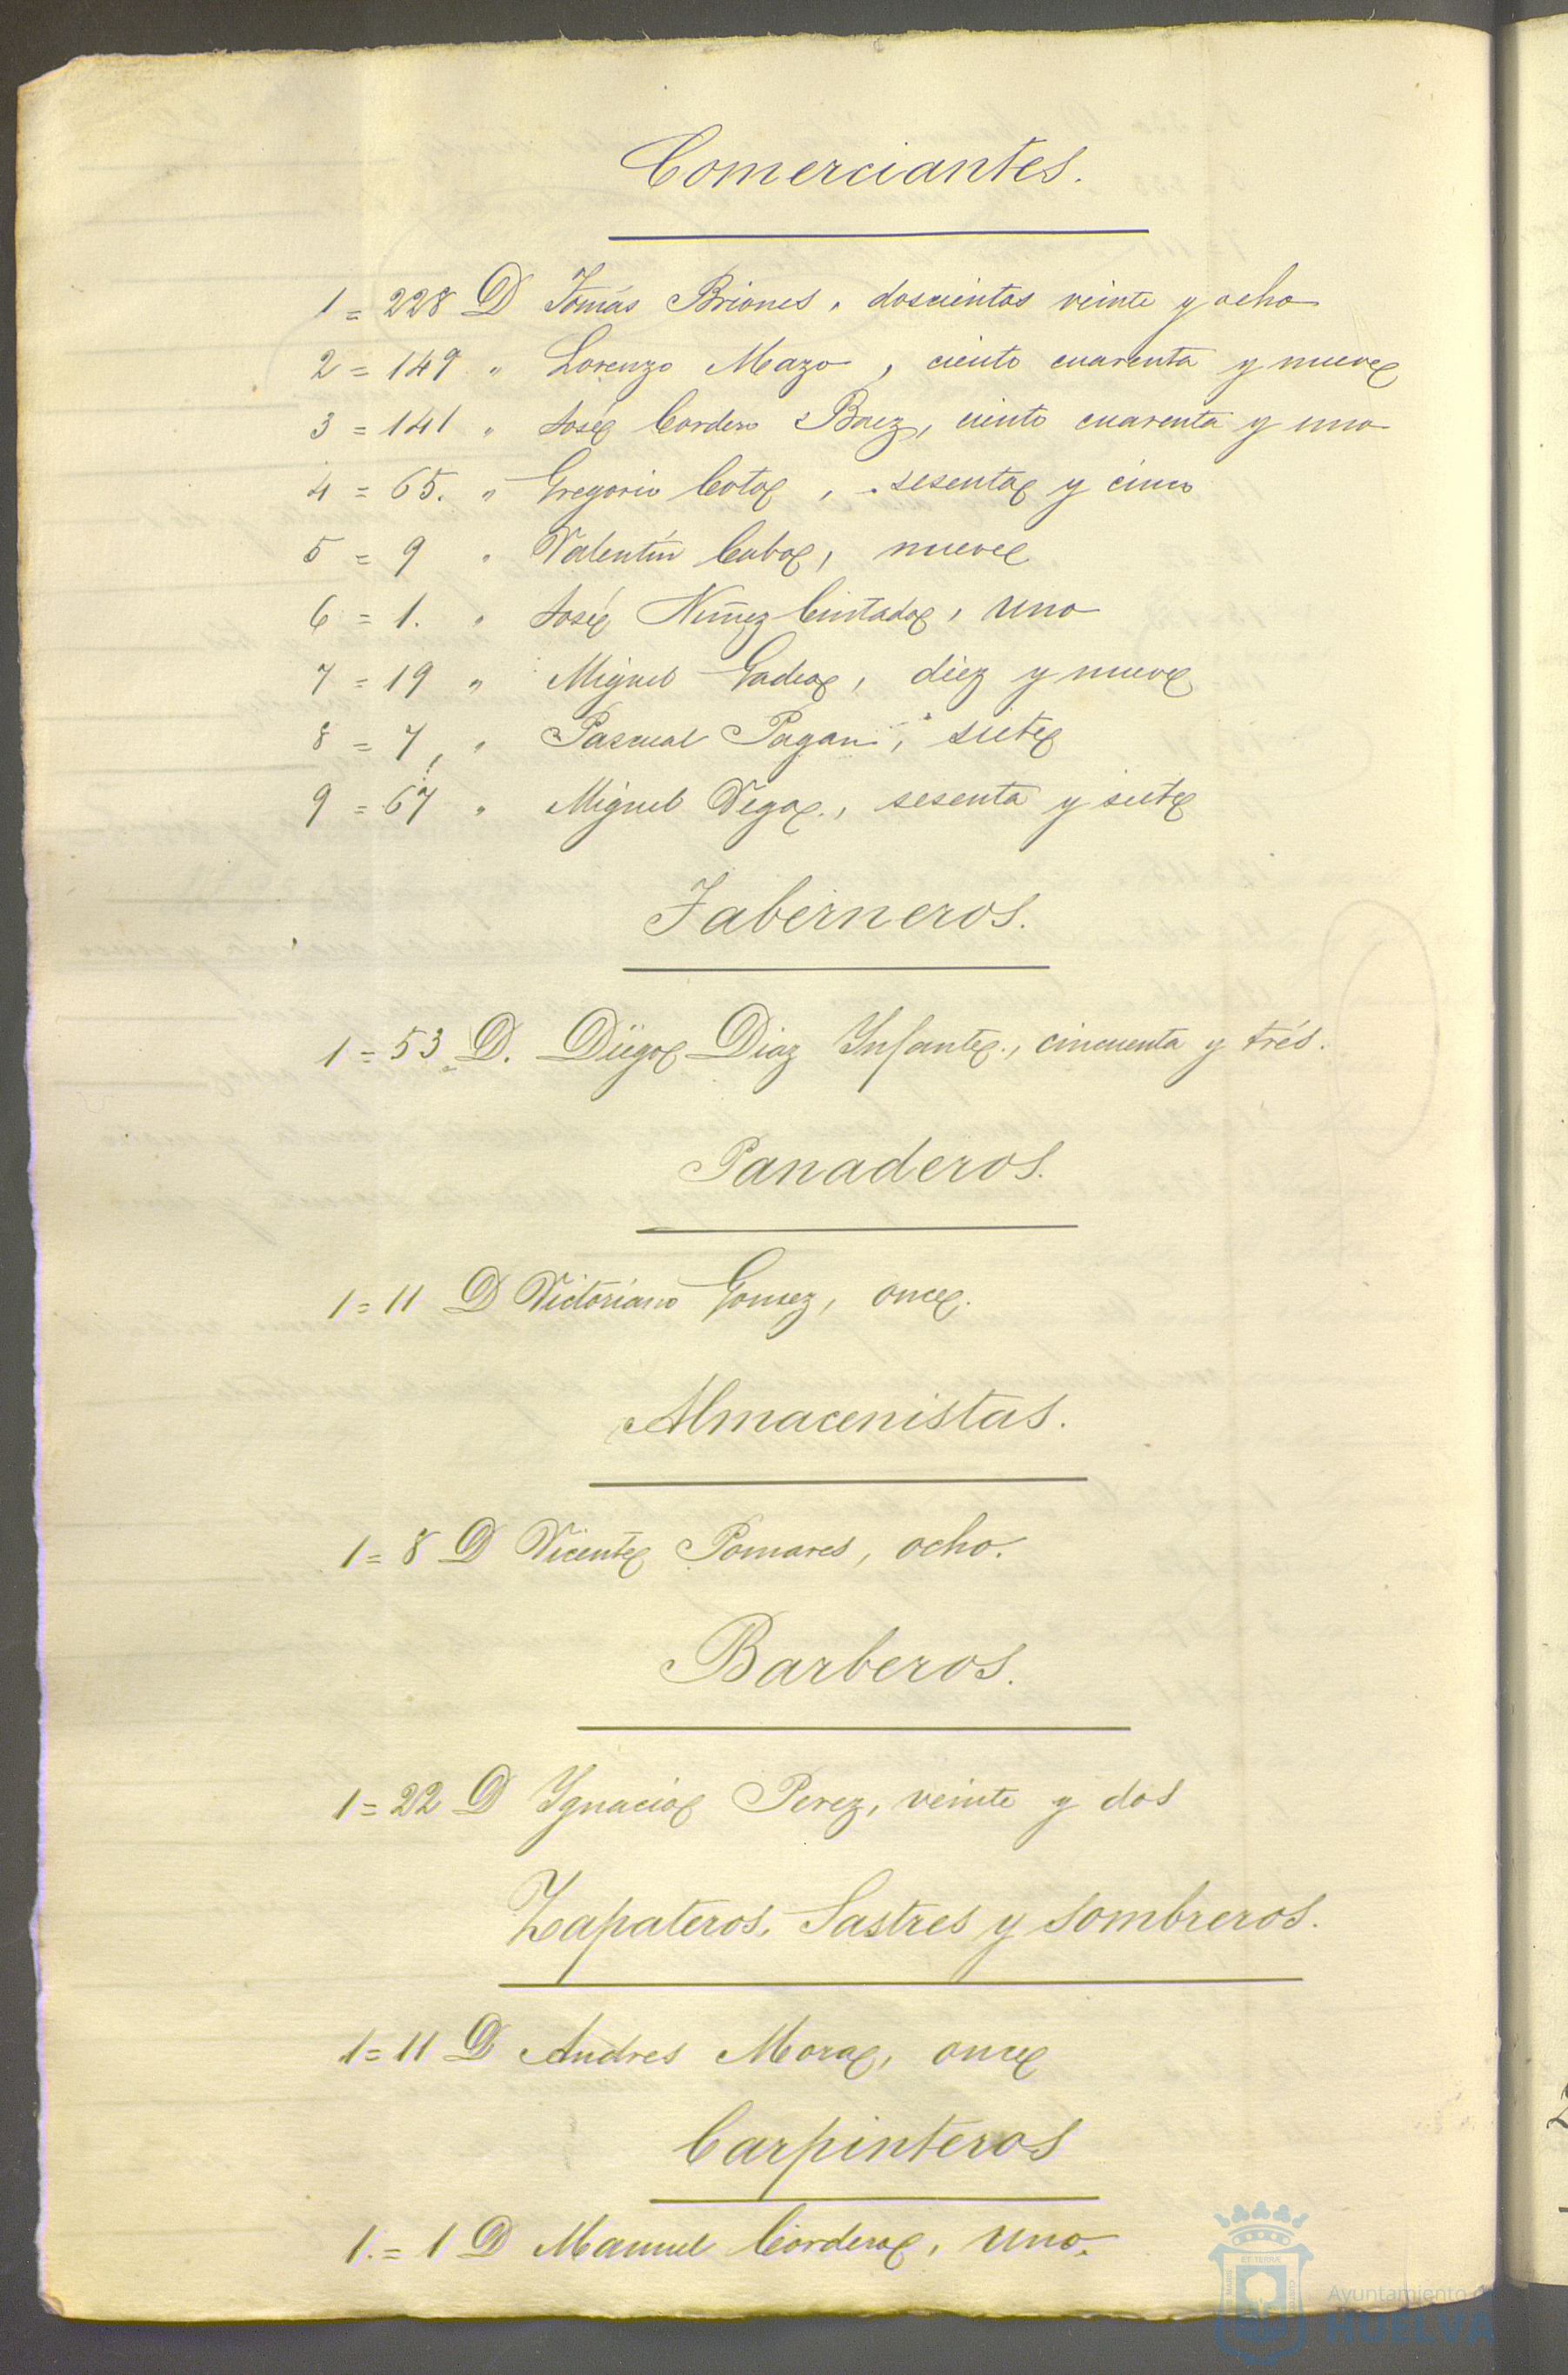 Comerciantes.
1 = 228 D Tomás Briones, doscientos veinte y ocho
2 = 149 " Lorenzo Mazo, ciento cuarenta y nueve
3 = 141 " José Cordero Baez, ciento cuarenta y uno
4 = 65. " Gregorio Cota, sesenta y cinco
5 = 9 " Valentín Cuba, nueve
6 = 1. " José Nuñez Cintado, uno
7 = 19 " Miguel Gadea, diez y nueve
8 = 7, " Pascual Pagan, siete
9 = 67 " Miguel Vega., sesenta y siete
Taberneros.
1 = 53 D. Diego Diaz Infante., cincuenta y trés.
Panaderos.
1 = 11 D Victoriano Gomez, once.
Almacenistas.
1 = 8 D Vicente Pomares, ocho.
Barberos.
1 = 22 D Ygnacio Perez, veinte y dos
Zapateros. Sastres y Sombreros.
1 = 11 D Andres Mora, once
Carpinteros
1. = 1 D Manuel Cordero, uno.
Ayuntamiento
HUELVA